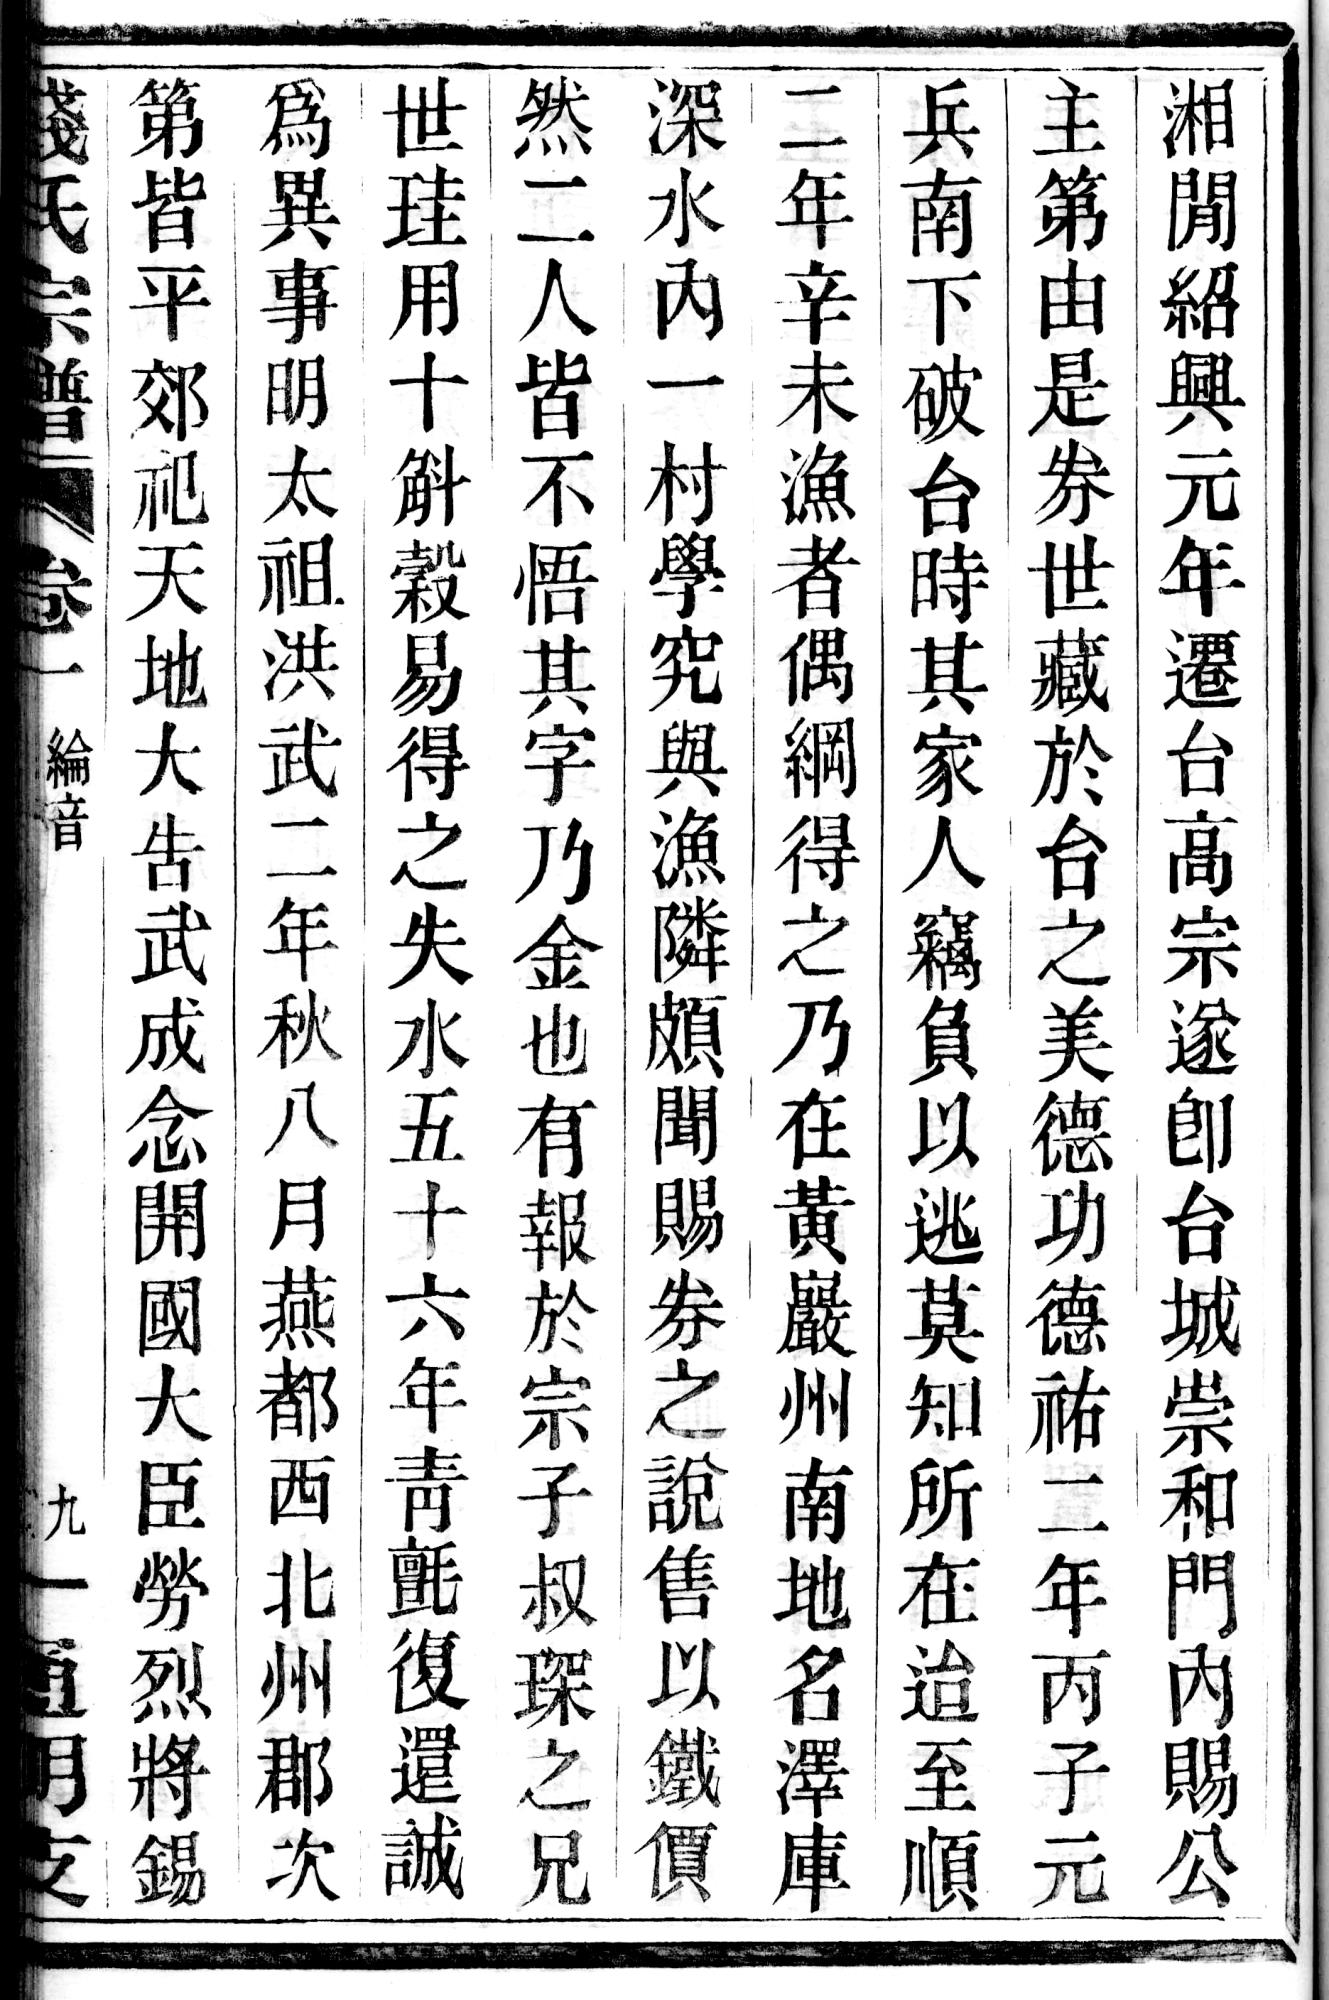 湘閒紹興元年遷台高宗遂卽台城崇和門內賜公
主第由是券世藏於台之美德功德祐二年丙子元
兵南下破台時其家人竊負以逃莫知所在迨至順
二年辛未漁者偶綱得之乃在黃巖州南地名澤庫
深水內一村學究與漁隣頗聞賜券之說售以鐵價
然二人皆不悟其字乃金也有報於宗子叔琛之兄
世珪用十斛穀易得之失水五十六年青氈復還誠
爲異事明太祖洪武二年秋八月燕都西北州郡次
第皆平郊祀天地大告武成念開國大臣勞烈將錫
錢氏宗譜 卷一 綸音 九 通明支